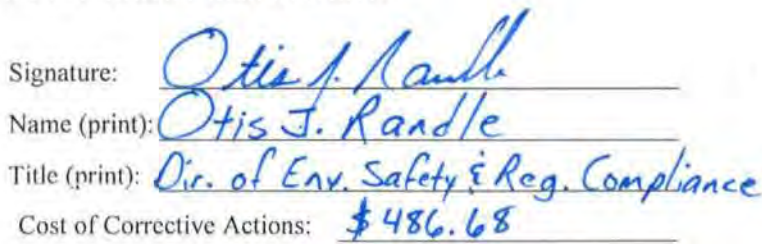 Signature: Otis J. Randle
Name (print): Otis J. Randle
Title (print): Dir. of Env. Safety & Reg. Compliance
Cost of Corrective Actions: $486.68